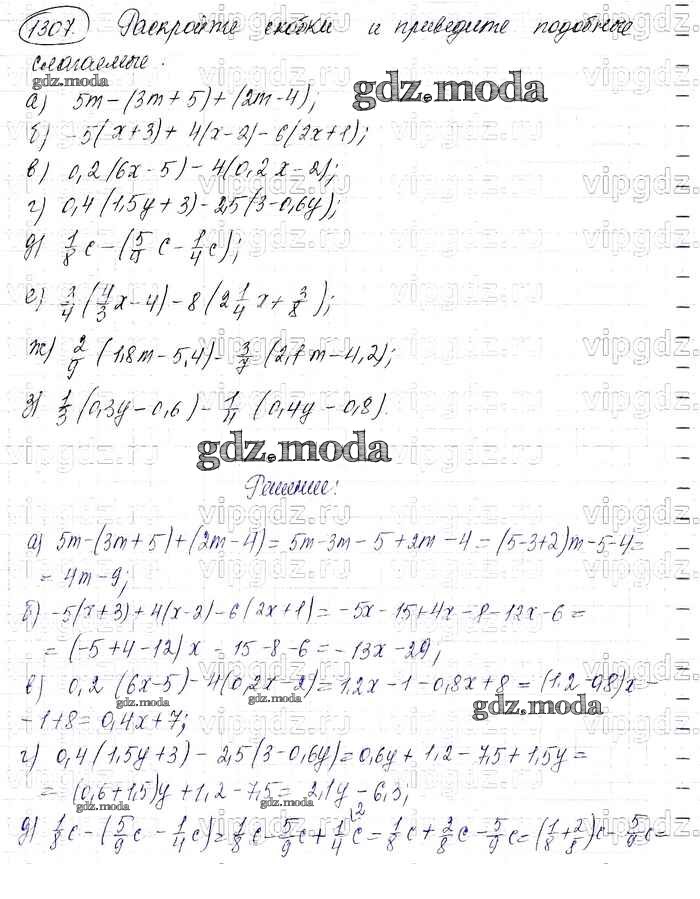 1307. Раскройте скобки и приведите подобные
слагаемые.
gdz.moda
gdz.moda
а) 5m-(3m+5)+(2m-4);
б) -5(x+3)+4(x-2)-6(2x+1);
в) 0,2(6x-5)-4(0,2x-2);
г) 0,4(1,5y+3)-2,5(3-0,6y);
д) 1/8 c-(5/9 c-1/4 c);
е) 3/4(4/3 x-4)-8(2 1/4 x+3/8);
ж) 2/9(1,8m-5,4)-3/7(2,1m-4,2);
з) 1/3(0,3y-0,6)-1/4(0,4y-0,8).
gdz.moda
Решение:
а) 5m-(3m+5)+(2m-4)=5m-3m-5+2m-4=(5-3+2)m-5-4=
=4m-9;
б) -5(x+3)+4(x-2)-6(2x+1)=-5x-15+4x-8-12x-6=
=(-5+4-12)x-15-8-6=-13x-29;
в) 0,2(6x-5)-4(0,2x-2)=1,2x-1-0,8x+8=(1,2-0,8)x-
gdz.moda
gdz.moda
gdz.moda
-1+8=0,4x+7;
г) 0,4(1,5y+3)-2,5(3-0,6y)=0,6y+1,2-7,5+1,5y=
=(0,6+1,5)y+1,2-7,5=2,1y-6,3;
gdz.moda
gdz.moda
д) 1/8 c-(5/9 c-1/4 c)=1/8 c-5/9 c+1/4 c=1/8 c+2/8 c-5/9 c=(1/8+2/8)c-5/9 c=